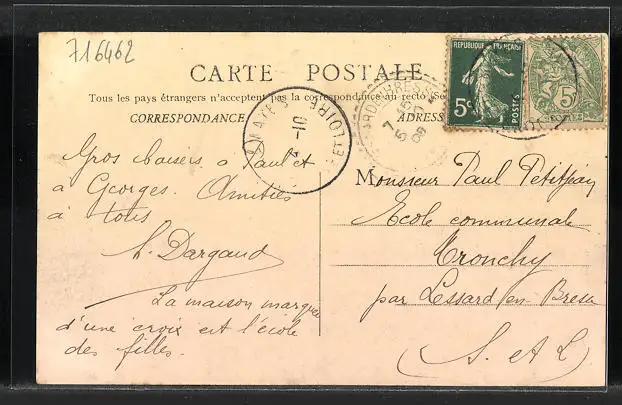 716462
CARTE POSTALE
Tous les pays étrangers n'acceptent pas la correspondance au recto (Se
CORRESPONDANCE
ADRESS
REPUBLIQUE FRANÇAISE
5c
POSTES
5
LOIRE
10
7
5
08
Gros baisers à Paul et
à Georges. Amitiés
à tous
Dargaud
La maison marquée
d'une croix est l'école
des filles.
Monsieur Paul Petitjean
Ecole communale
Tronchy
par Lessard en Bresse
(S. et L)